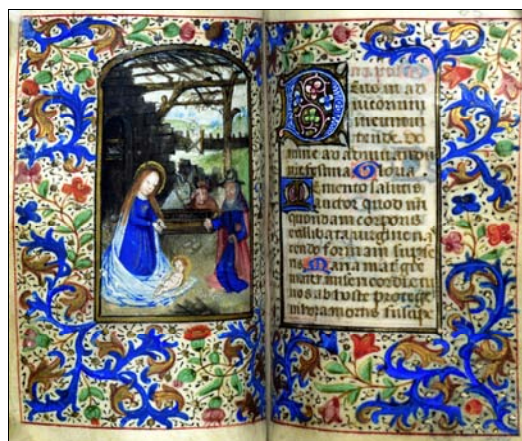 Deus in ad
iutorium
meum in
tende. Do
mine ad adiuuandū
me festina Gloria
Memento salutis
auctor quod nr̄i
quondam corporis
ex illibata uirgine na
scendo formam sumpse
ris Maria mater gr̄e
mater misericordie tu
nos ab hoste protege
in hora mortis suscipe